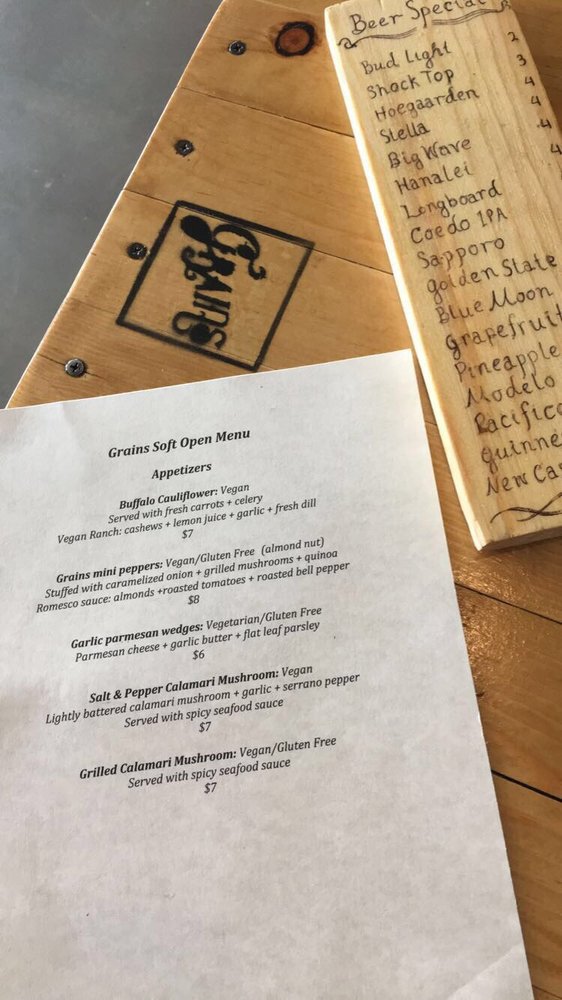 Beer Special
Bud Light 2
Shock Top 3
Hoegaarden 4
Stella 4
Big Wave 4
Hanalei 4
Longboard
Coedo IPA
Sapporo
Golden State
Blue Moon
Grapefruit
Pineapple
Modelo
Pacifico
Guinne
New Ca
Grains
Grains Soft Open Menu
Appetizers
Buffalo Cauliflower: Vegan
Served with fresh carrots + celery
Vegan Ranch: cashews + lemon juice + garlic + fresh dill
$7
Grains mini peppers: Vegan/Gluten Free (almond nut)
Stuffed with caramelized onion + grilled mushrooms + quinoa
Romesco sauce: almonds +roasted tomatoes + roasted bell pepper
$8
Garlic parmesan wedges: Vegetarian/Gluten Free
Parmesan cheese + garlic butter + flat leaf parsley
$6
Salt & Pepper Calamari Mushroom: Vegan
Lightly battered calamari mushroom + garlic + serrano pepper
Served with spicy seafood sauce
$7
Grilled Calamari Mushroom: Vegan/Gluten Free
Served with spicy seafood sauce
$7